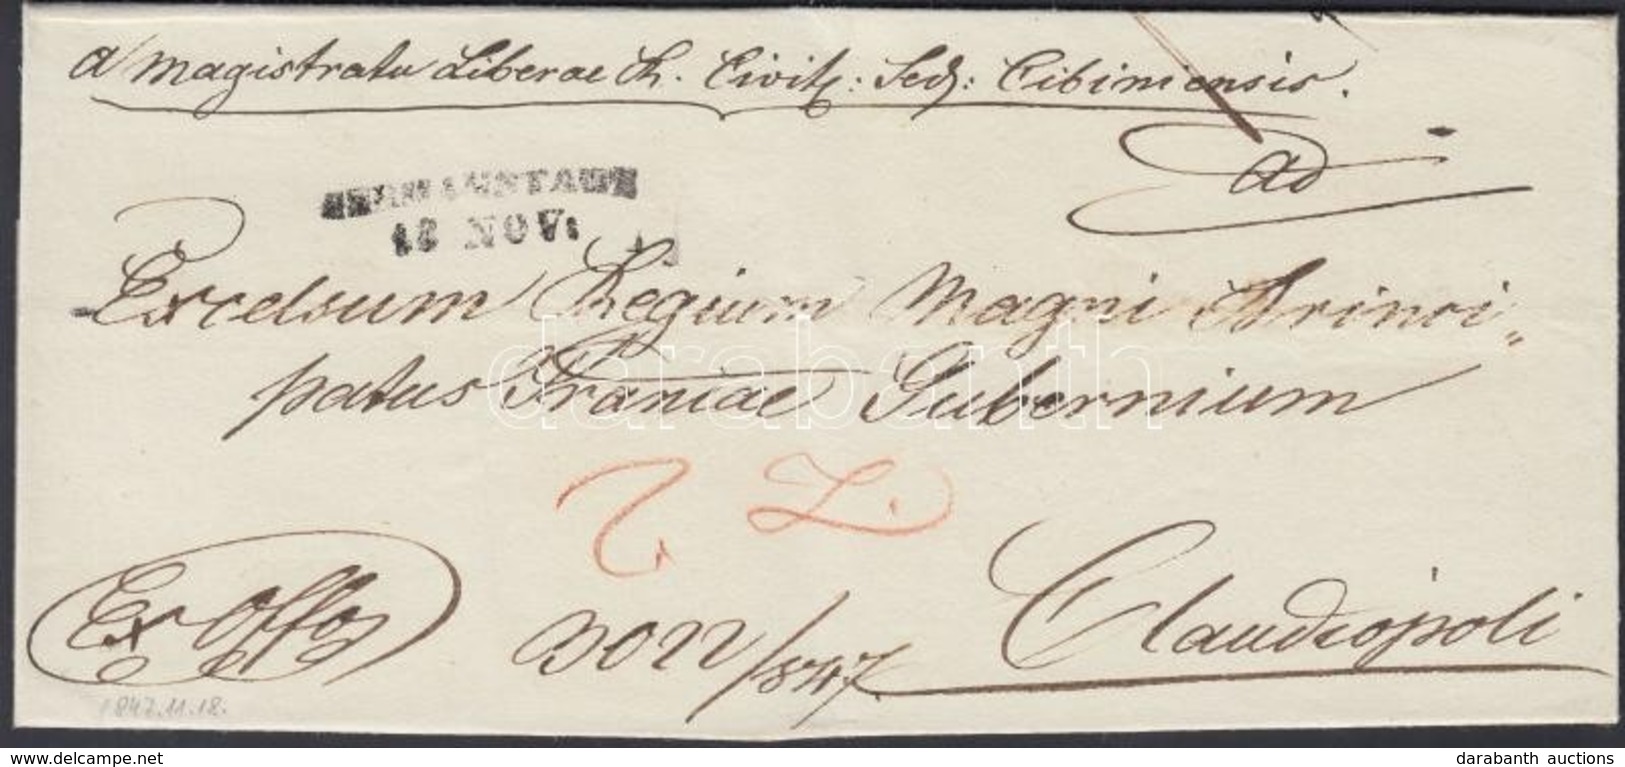 a Magistratu Liberae R. Civit: Sed: Cibiniensis.
ad
HERMANSTADT
18 NOV:
Excelsum Regium Magni Princi„
patus Traniae Gubernium
Z.
Ex Offo
3022/847.
Claudiopoli
1847.11.18.
darabanth
delcampe.net
darabanth auctions